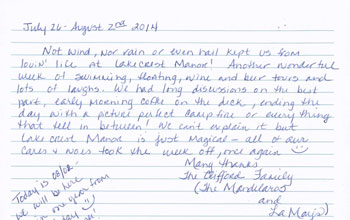 July 26 - August 2nd 2014
Not wind, nor rain or even hail kept us from
lovin' life at Lakecrest Manor! Another wonderful
week of swimming, floating, wine and beer tours and
lots of laughs. We had long discussions on the best
part, early morning coffee on the deck, ending the
day with a picture perfect campfire or everything
that fell in between! We can't explain it but
Lakecrest Manor is just magical - all of our
cares & woes took the week off, once again
Many thanks
The Clifford Family
(The Mandularos
and
La Mays)
Today is 08/02 -
we will be here
in one year from
today